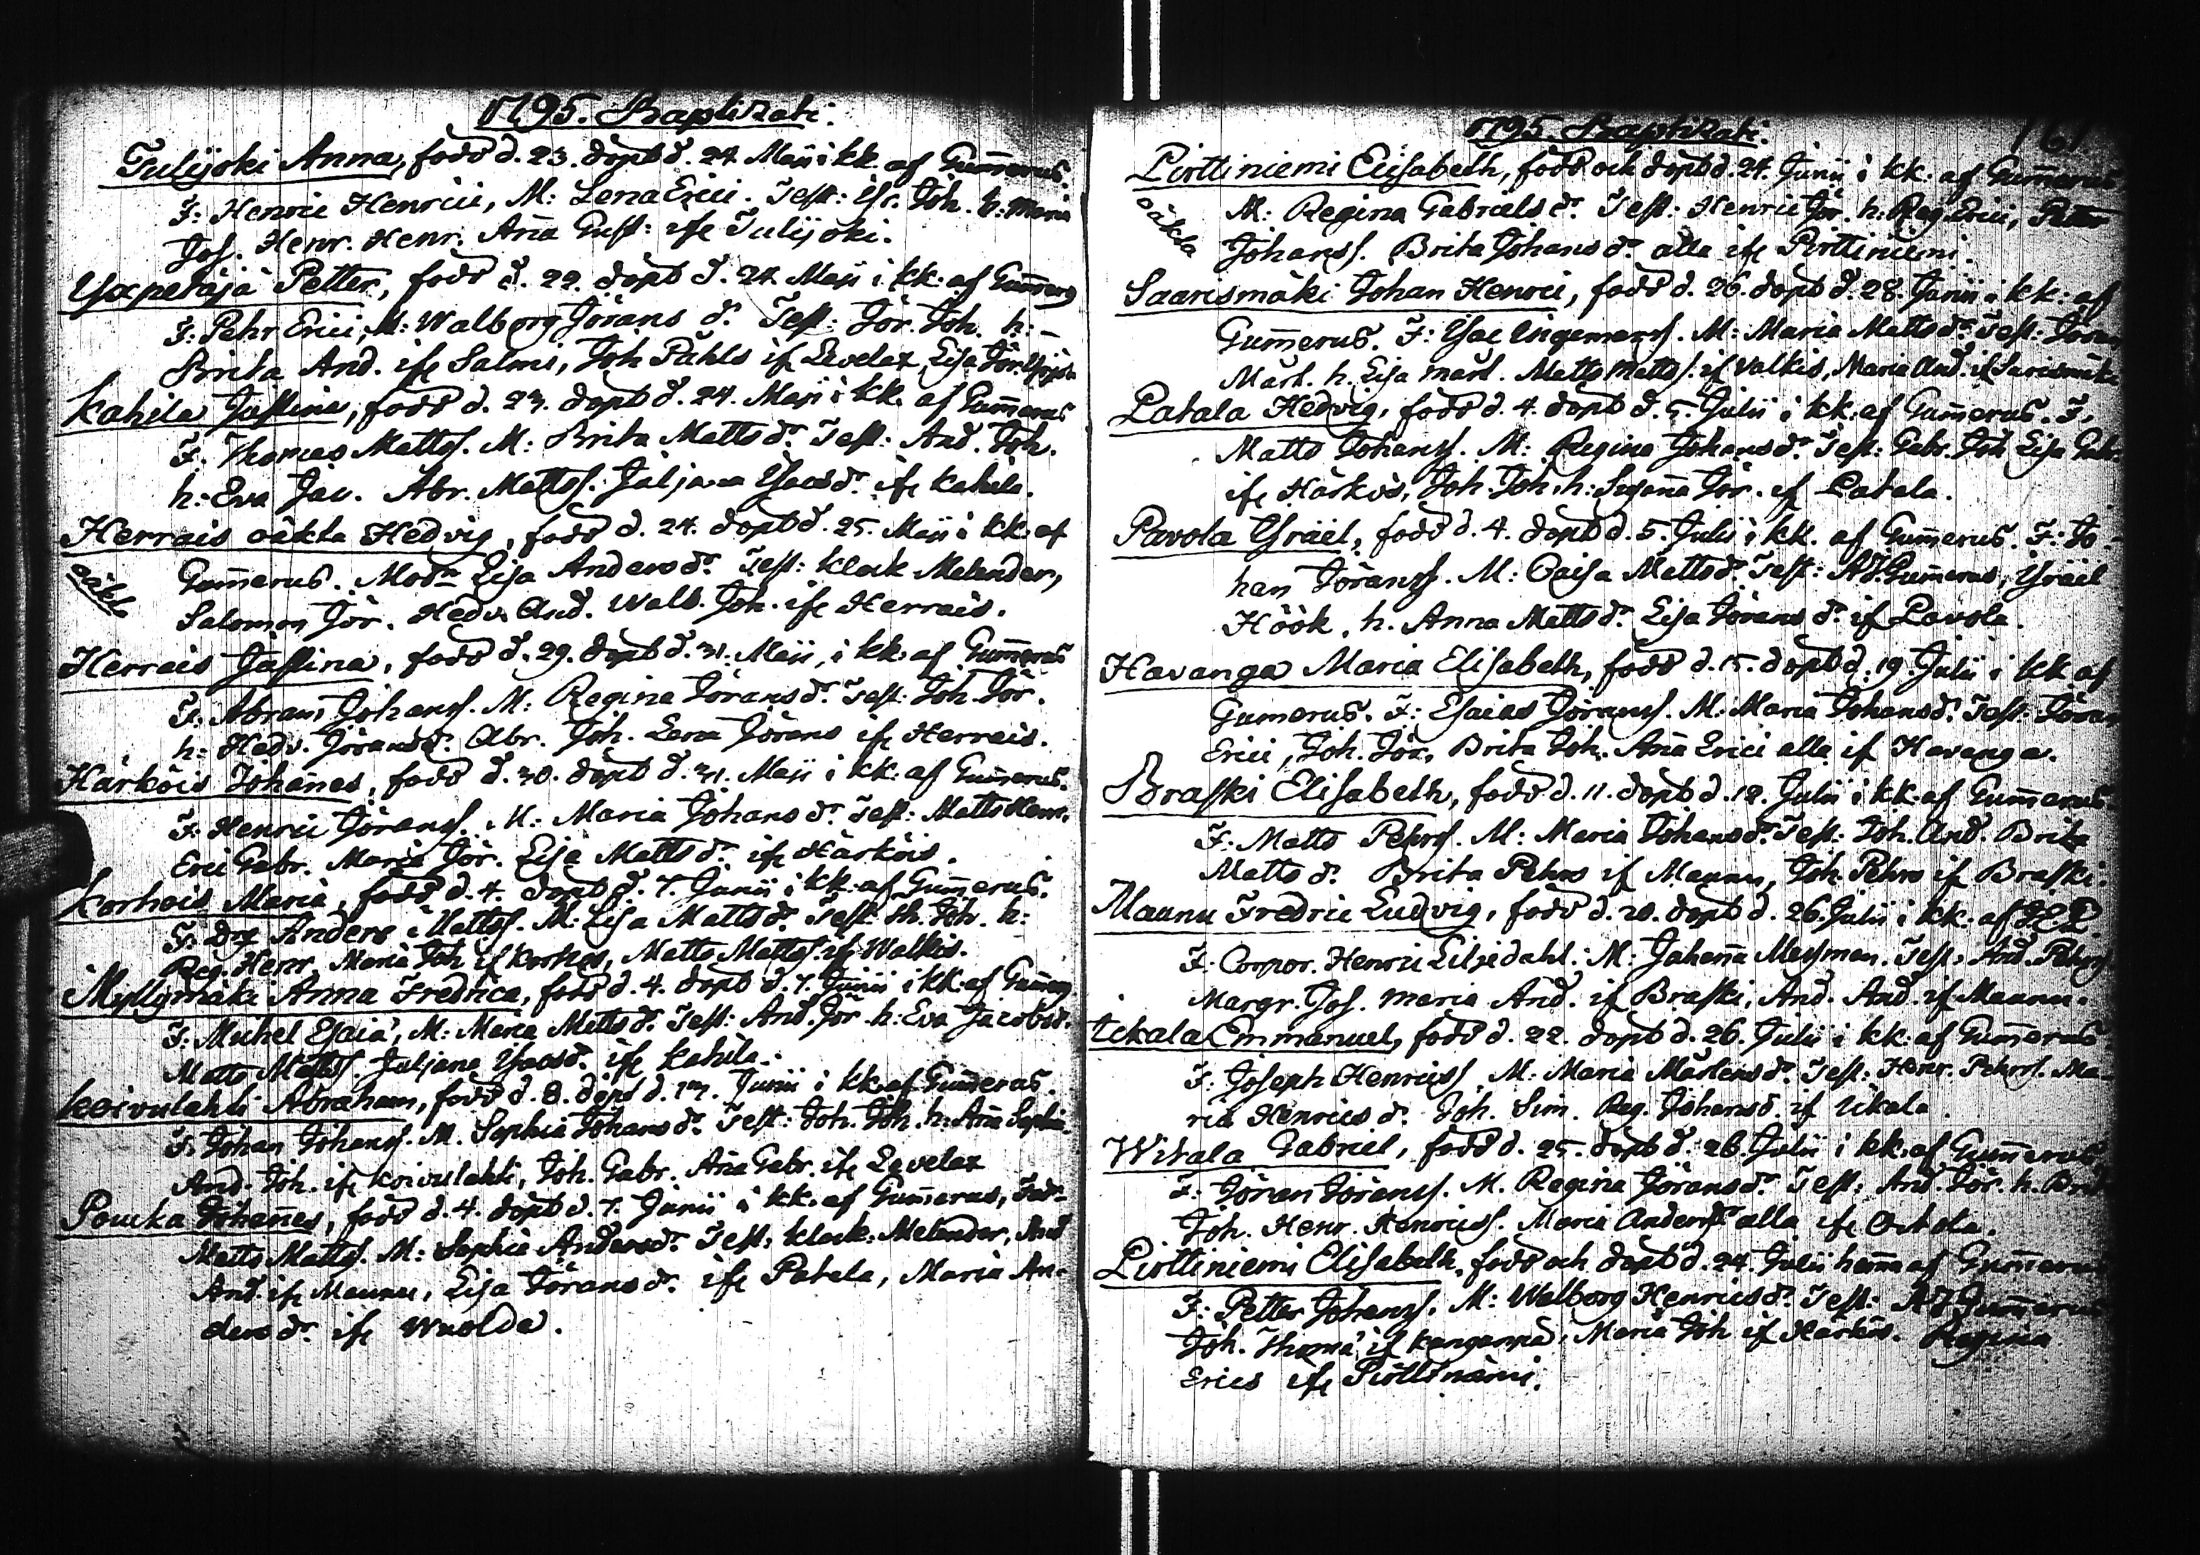 1795. Baptizati.
Tulijoki Anna, född d. 23. döpt d. 24 Maji i kk. af Gumerus.
F: Henric Henrici, M: Lena Erici. Test: Joh. h: Maria
Jos. Henr. Henr. Aña Gust: ifr Tulijoki.
Petter, född d. 22. döpt d. 24 Maji i kk: af
F: Pehr Erici, M: Walborg Jörans dr. Test: Jör. Joh. h:
Brita And. ifr Salmi, Joh Påhls if Levelax, Lisa Jör.
Kahila Justina, född d. 23. döpt d. 24. Maji i kk. af Gumerus
F. Thomas Mattss. M: Brita Matts dr. Test: And. Joh.
h: Eva Jac. Abr. Mattss. Juljana Isacs dr. ifr Kahila.
Herrais oäkta Hedvig, född d. 24. döpt d. 25. Maji i kk: af
oäkta Gumerus. Modn Lisa Anders dr. Test: klock Melander,
Salomon Jör. Hedv. And. Walb. Joh. ifr Herrais.
Herrais Justina, född d. 29. döpt d. 31. Maji, i kk: af Gumerus
F: Abram Johanss. M: Regina Jörans dr. Test: Joh. Jör.
h: Hedv. Jörans dr. Abr. Joh. Lena Jörans ifr Herrais.
Härköis Johañes, född d. 30. döpt d. 31. Maji i kk: af Gumerus.
F: Henric Jöranss. M: Maria Johans dr. Test: Matts Henr.
Eric Gabr. Maria Jör. Lisa Matts dr. ifr Härköis.
Korhois Maria, född d. 4. döpt d. 7. Junii i kk: af Gumerus.
F: Drg Anders Mattss. M: Lisa Matts dr. Test: Joh. h:
Reg. Henr. Maria Joh if Korhois, Matts Mattss. if Walkis.
Myllymäki Anna Fredrica, född d. 4. döpt d. 7. Junii i kk: af
F: Michel Esaiæ, M: Maria Matts dr. Test: And. Jör h: Eva Jacobs dr.
Matts Mattss. Juljana Isacs dr. ifr Kahila.
Koivulahti Abraham, född d. 8. döpt d. Junii i kk af Gumerus.
F: Johan Johanss. M. Sophia Johans dr. Test: Joh. Joh. h: Aña Sophia
And. Joh. ifr Koivulahti, Joh. Gabr. Aña Gabr. ifr Levelax
Poucka Johañes, född d. 4. döpt d. 7. Junii i kk. af Gumerus,
Matts Mattss. M: Sophia Anders dr. Test: klock: Melander, And
And. ifr Maunu, Lisa Jörans dr. ifr Patala, Maria An-
ders dr. ifr Wuolda.
1795. Baptizati.
Pirttiniemi Elisabeth, född och döpt d. 24. Junii i kk. af Gumerus
oäkta M: Regina Gabriels dr. Test: Henric Jör. h: Reg. Erici, Petter
Johanss. Brita Johans dr. alla ifr Pirttiniemi.
Saarismäki Johan Henric, född d. 26. döpt d. 28. Junii i kk: af
Gumerus. F: Isac Ingemarss. M: Maria Matts dr. Test: Jöran
Märt. h. Lisa Märt. Matts Mattss. if Walkis, Maria And. if Sarismäki
Patala Hedvig, född d. 4. döpt d. 5. Julii i kk. af Gumerus. F.
Matts Johanss. M: Regina Johans dr. Test: Gabr. Joh Lisa Gabr.
ifr Härköis, Joh. Joh. h: Susaña Jör. if Patala.
Pavola Israël, född d. 4. döpt d. 5. Julii i kk. af Gumerus. F: Jo-
han Jöranss. M: Caisa Matts dr. Test: AJ. Gumerus, Israël
Höök, h. Anna Matts dr. Lisa Jörans dr. if Pavola.
Havanga Maria Elisabeth, född d. 15. döpt d. 19. Julii i kk af
Gumerus. F: Esaias Jöranss. M: Maria Johans dr. Test: Jöran
Erici, Joh. Jör. Brita Joh. Aña Erici alla if Havanga.
Braski Elisabeth, född d. 11. döpt d. 12. Julii i kk: af Gumerus
F: Matts Pehrss. M: Maria Johans dr. Test: Joh. And. Brita
Matts dr. Brita Pehrs if Maunu, Joh. Pehrs if Braski.
Maunu Fredric Ludvig, född d. 20. döpt d. 26. Julii i kk. af
F: Corpor. Henric Liljedahl: M: Johaña Mesman. Test: And. Pehrs
Margr. Jos. Maria And. if Braski, And. And. if Maunu.
Ukala Emmanuel, född d. 22. döpt d. 26. Julii i kk: af Gumerus
F: Joseph Henricss. M: Maria Mårtens dr. Test: Henr. Pehrss. Ma-
ria Henrics dr. Joh. Sim. Reg. Johans d. if Ukala.
Witala Gabriel, född d. 25. döpt d. 26. Julii i kk: af Gumerus
F: Jöran Jöranss. M. Regina Jörans dr. Test: And. Jör. h. Brita
Joh. Henr. Henricss. Maria Anders dr alla ifr
Pirttiniemi Elisabeth, född och döpt d. 24. Julii hema af Gumerus
F: Petter Johanss. M: Walborg Henrics dr. Test: AJ Gumerus
Joh. Thomæ if Kangarpä, Maria Joh if Härköis. Regina
Erics ifr Pirttiniemi.